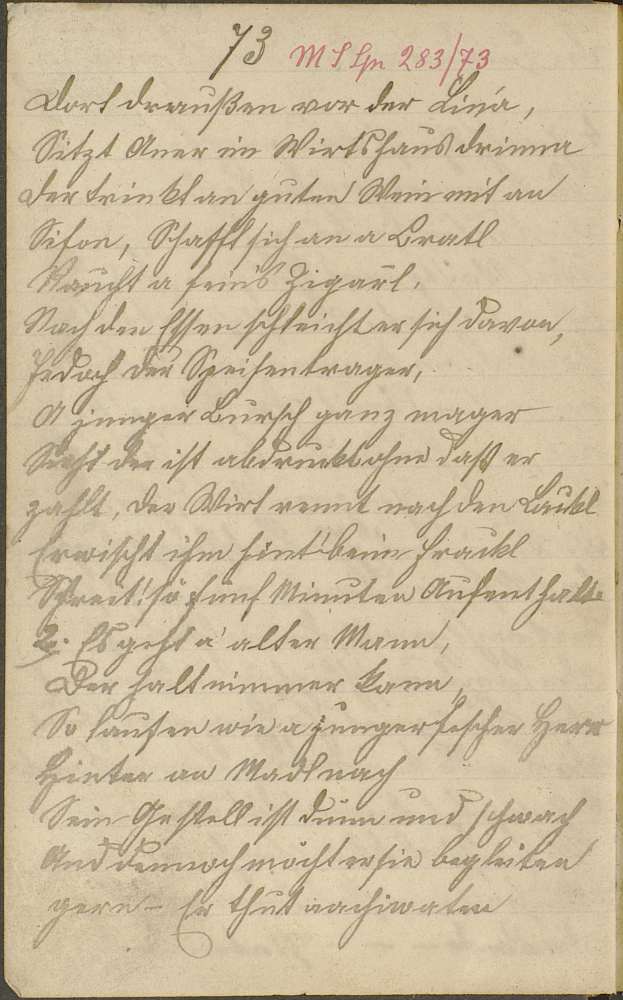 73 MS Ln 283/73
Dort draußen vor der Linia,
Sitzt Aner im Wirtshaus drinna
der trinkt an guten Wein mit an
Sifon, Schafft sich an a Bratl
Raucht a fein's Zigarl.
Nach den Essen schleicht er sich davon,
Jedoch der Speisentrager,
A junger Bursch ganz mager
Sieht der ist abdruckt ohne daß er
zahlt, der Wirt rennt nach den Lackl
Erwischt ihm hint' beim Frackl
Schreit: sö fünf Minuten Aufenthalt.
2. Es geht a' alter Mann,
Der halt nimmer kann,
So laufen wie a junger fescher Herr
Hinter an Madl nach
Sein Gestell ist dünn und schwach
Und dennoch möcht er sie begleiten
gern - Er thut nachiwaten